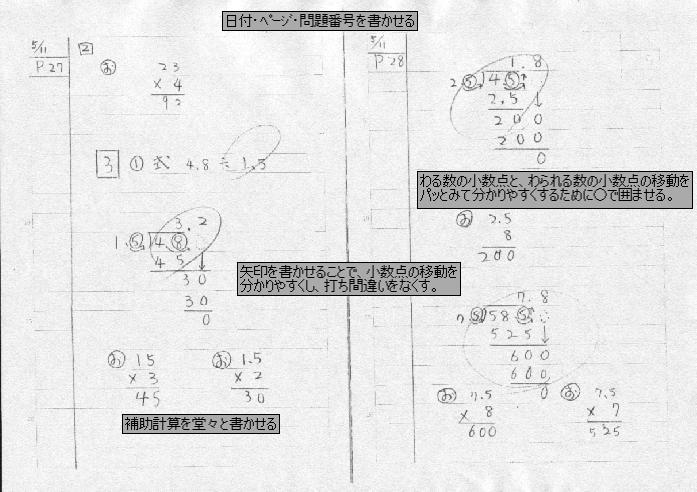 日付・ページ・問題番号を書かせる
5/11
P27
2
お
23
× 4
92
3 ① 式 4.8 ÷ 1.5
3.2
1.5 4.8
45
30
30
0
お 15
× 3
45
お 1.5
× 2
30
補助計算を堂々と書かせる
矢印を書かせることで、小数点の移動を
分かりやすくし、打ち間違いをなくす。
5/11
P28
1.8
2.5 4.5
2.5
200
200
0
わる数の小数点と、わられる数の小数点の移動を
パッとみて分かりやすくするために〇で囲ませる。
お 2.5
8
200
7.8
7 5 58.5
525
600
600
0
お 7.5
× 8
600
お 7.5
× 7
525